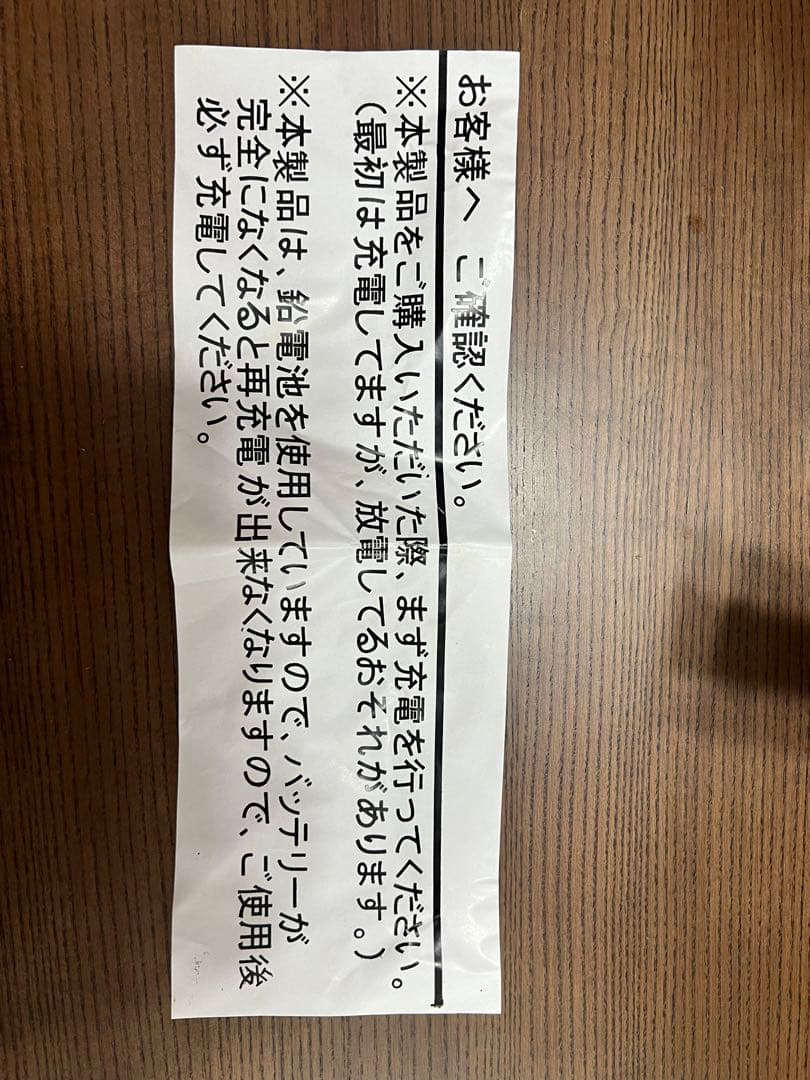 お客様へ ご確認ください。
※本製品をご購入いただいた際、まず充電を行ってください。
(最初は充電してますが、放電してるおそれがあります。)
※本製品は、鉛電池を使用していますので、バッテリーが
完全になくなると再充電が出来なくなりますので、ご使用後
必ず充電してください。